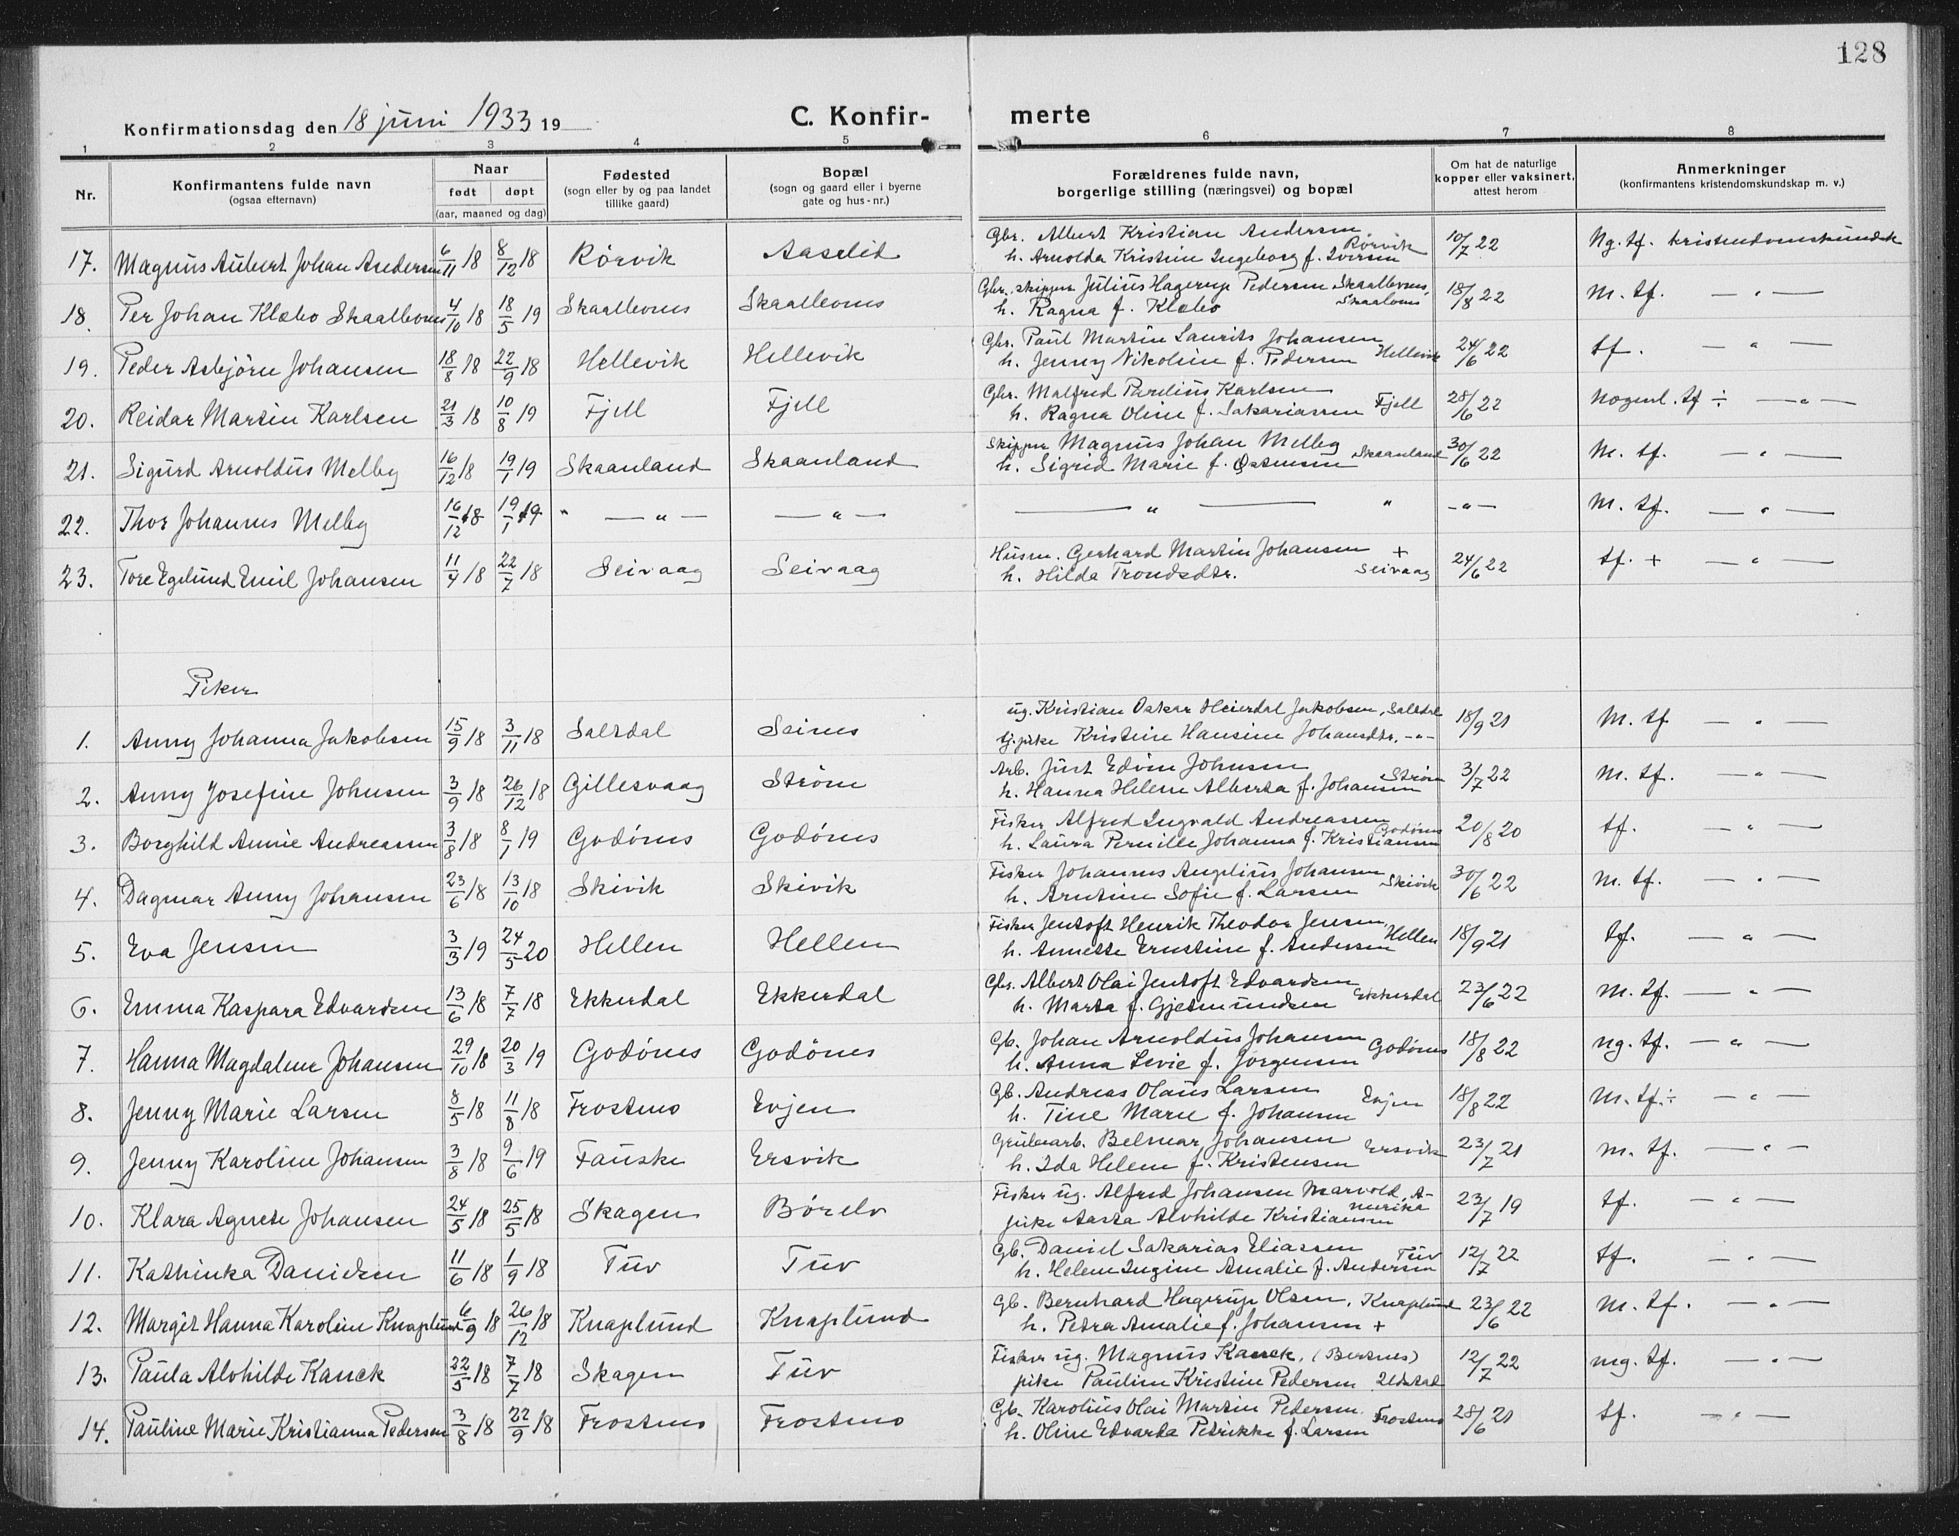 128
Konfirmationsdag den 18 juni 1933 19
C. Konfirmerte
1 2 3 4 5 6 7 8
Nr.
Konfirmantens fulde navn
(ogsaa efternavn)
Naar
født døpt
(aar, maaned og dag)
Fødested
(sogn eller by og paa landet
tillike gaard)
Bopæl
(sogn og gaard eller i byerne
gate og hus-nr.)
Forældrenes fulde navn,
borgerlige stilling (næringsvei) og bopæl
Om hat de naturlige
kopper eller vaksinert,
attest herom
Anmerkninger
(konfirmantens kristendomskundskap m. v.)
17. Magnus Aubert Johan Andersen 6/11 18 8/12 18 Rørvik Aaselid Gbr. Albert Kristian Andersen
h. Arnolda Kristine Ingeborg f. Iversen Rørvik 10/7 22 Ng. tf. kristendomskundsk
18. Per Johan Klæbo Skaalbones 4/10 18 18/5 19 Skaalbones Skaalbones Gbr. skipper Julius Hagerup Pedersen Skaalbones,
h. Ragna f. Klæbo 18/8 22 M. tf. — " —
19. Peder Asbjörn Johansen 18/8 18 22/9 18 Hellevik Hellevik Gbr. Paul Martin Laurits Johansen
h. Jenny Nikoline f. Pedersen Hellevik 24/6 22 tf. — " —
20. Reidar Martin Karlsen 21/3 18 10/8 19 Fjell Fjell Gbr. Malfred Parelius Karlsen
h. Ragna Oline f. Sakariassen Fjell 28/6 22 Nogenl. tf ÷ — " —
21. Sigurd Arnoldus Melby 16/12 18 19/1 19 Skaanland Skaanland Skipper Magnus Johan Melby
h. Sigrid Marie f. Østensen Skaanland 30/6 22 M. tf. — " —
22. Thor Johannes Melby 16/12 18 19/1 19 " — " — — " — — " — " — " — M. tf. — " —
23. Tore Egelund Emil Johansen 11/4 18 22/7 18 Seivaag Seivaag Husm. Gerhard Martin Johansen +
h. Hilda Trondsdtr. Seivaag 24/6 22 tf. + — " —
Piker
1. Anny Johanna Jakobsen 15/9 18 3/11 18 Saltdal Seines ug. Kristian Oskar Heierdal Jakobsen, Saltdal
tj.pike Kristine Hansine Johansdtr. — " — 18/9 21 M. tf — " —
2. Anny Josefine Johnsen 3/9 18 26/12 18 Gillesvaag Strøm Arb. Just Edvin Johnsen
h. Hanna Helene Alberta f. Johansen Strøm 3/7 22 M. tf. — " —
3. Borghild Annie Andreassen 3/8 18 8/1 19 Godönes Godönes Fisker Alfred Ingvald Andreassen
h. Laura Pernille Johanna f. Kristiansen Godönes 20/8 20 tf. — " —
4. Dagmar Anny Johansen 23/6 18 13/10 18 Skivik Skivik Fisker Johannes Angelius Johansen
h. Arntine Sofie f. Larsen Skivik 30/6 22 M. tf. — " —
5. Eva Jensen 3/3 19 24/5 20 Hellen Hellen Fisker Jentoft Henrik Theodor Jensen,
h. Annette Ernstine f. Andersen Hellen 18/9 21 tf. — " —
6. Emma Kaspara Edvardsen 13/6 18 7/7 18 Ekkerdal Ekkerdal Gbr. Albert Olai Jentoft Edvardsen
h. Marta f. Gjetmundsen Ekkerdal 23/6 22 M. tf. — " —
7. Hanna Magdalene Johansen 29/10 18 20/3 19 Godönes Godönes Gb. Johan Arnoldus Johansen
h. Anna Sevie f. Jörgensen Godönes 18/8 22 ng. tf. — " —
8. Jenny Marie Larsen 8/5 18 11/8 18 Frostmo Evjen Gb. Andreas Olaus Larsen
h. Tine Marie f. Johansen Evjen 18/8 22 M. tf. ÷ — " —
9. Jenny Karoline Johansen 3/8 18 9/6 19 Fauske Ersvik Grubearb. Belmar Johansen
h. Ida Helene f. Kristensen Ersvik 23/7 21 M. tf. — " —
10. Klara Agnete Johansen 24/5 18 25/5 18 Skagen Börelv Fisker ug. Alfred Johansen Marvold, A-
merika
pike Aasta Alvhilde Kristiansen 23/7 19 tf. — " —
11. Kathinka Danielsen 11/6 18 1/9 18 Tuv Tuv Gb. Daniel Sakarias Eliassen
h. Helene Ingine Amalie f. Andersen Tuv 12/7 22 tf. — " —
12. Margit Hanna Karoline Knaplund 6/9 18 26/12 18 Knaplund Knaplund Gb. Bernhard Hagerup Olsen, Knaplund
h. Petra Amalie f. Johansen + 23/6 22 M. tf. — " —
13. Paula Alvhilde Kanck 22/5 18 7/7 18 Skagen Tuv Fisker ug. Magnus Kanck, (Bertnes)
pike Pauline Kristine Pedersen 12/7 22 mg. tf. — " —
14. Pauline Marie Kristianna Pedersen 3/8 18 22/9 18 Frostmo Frostmo Gb. Karolius Olai Martin Pedersen
h. Oline Edvarda Petrikke f. Larsen Frostmo 28/6 21 tf. — " —